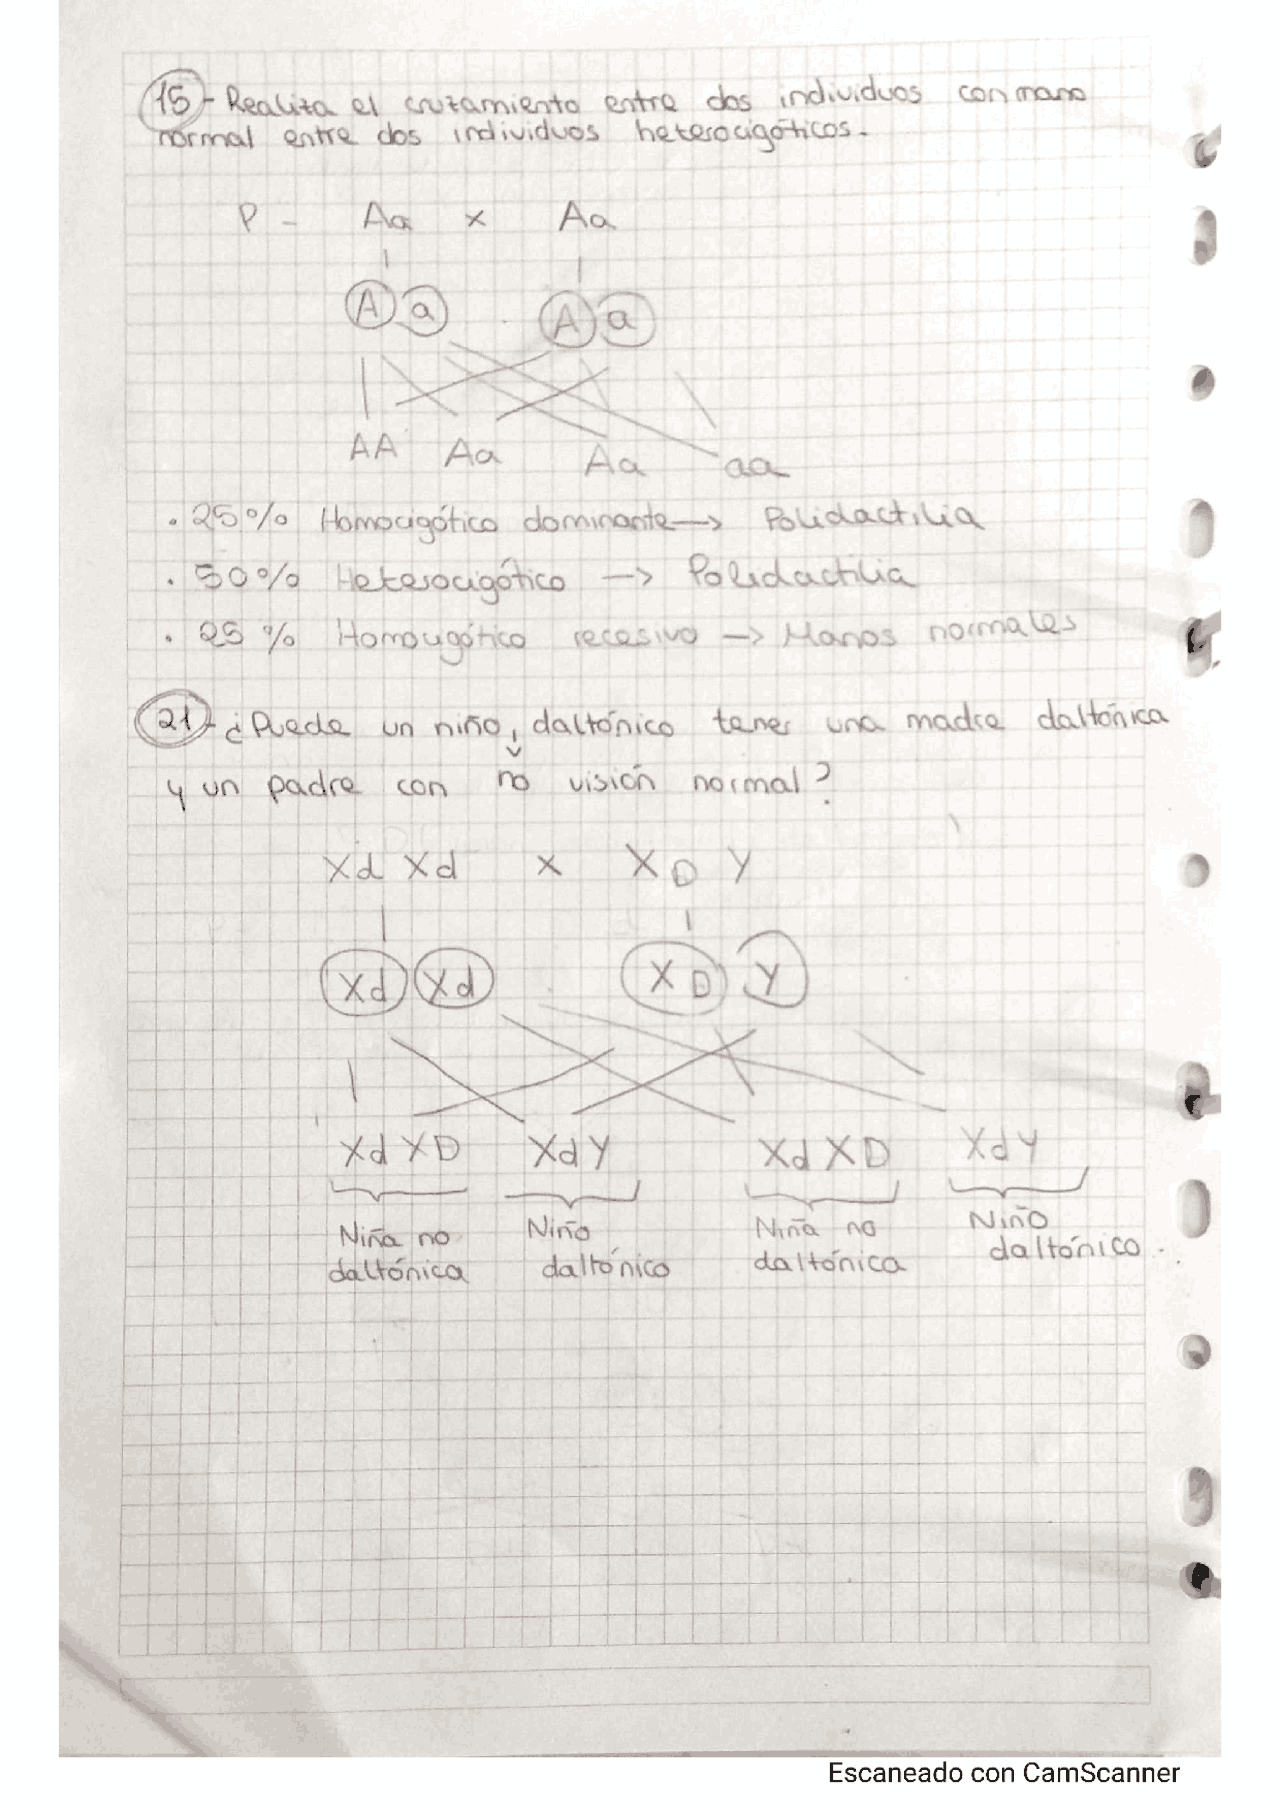 15- Realiza el cruzamiento entre dos individuos con mano
normal entre dos individuos heterocigóticos.
P - Aa x Aa
A a A a
AA Aa Aa aa
. 25% Homocigótico dominante → Polidactilia
. 50% Heterocigótico → Polidactilia
. 25 % Homocigótico recesivo → Manos normales
21- ¿Puede un niño, daltónico tener una madre daltónica
y un padre con no visión normal?
Xd Xd x XD Y
Xd Xd XD Y
Xd XD XdY Xd XD XdY
Niña no Niño Niña no Niño
daltónica daltónico daltónica daltónico.
Escaneado con CamScanner